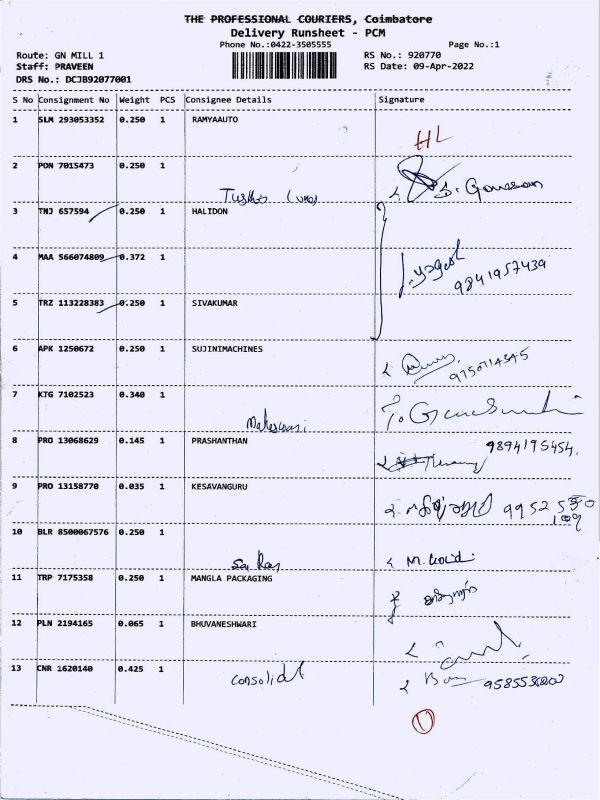 THE PROFESSIONAL COURIERS, Coimbatore
Delivery Runsheet - PCM
Phone No.:0422-3505555
Page No.:1
Route: GN MILL 1
RS No.: 920770
Staff: PRAVEEN
RS Date: 09-Apr-2022
DRS No.: DCJB92077001
S No Consignment No Weight PCS Consignee Details Signature
1 SLM 293053352 0.250 1 RAMYAAUTO
HL
2 PON 7015473 0.250 1
3 TNJ 657594 0.250 1 HALIDON
4 MAA 566074809 0.372 1
9841957439
5 TRZ 113228383 0.250 1 SIVAKUMAR
6 APK 1250672 0.250 1 SUJINIMACHINES
9750714345
7 KTG 7102523 0.340 1
Maheswari
8 PRO 13068629 0.145 1 PRASHANTHAN
9894195454.
9 PRO 13158770 0.035 1 KESAVANGURU
10 BLR 8500067576 0.250 1
11 TRP 7175358 0.250 1 MANGLA PACKAGING
12 PLN 2194165 0.065 1 BHUVANESHWARI
13 CNR 1620140 0.425 1